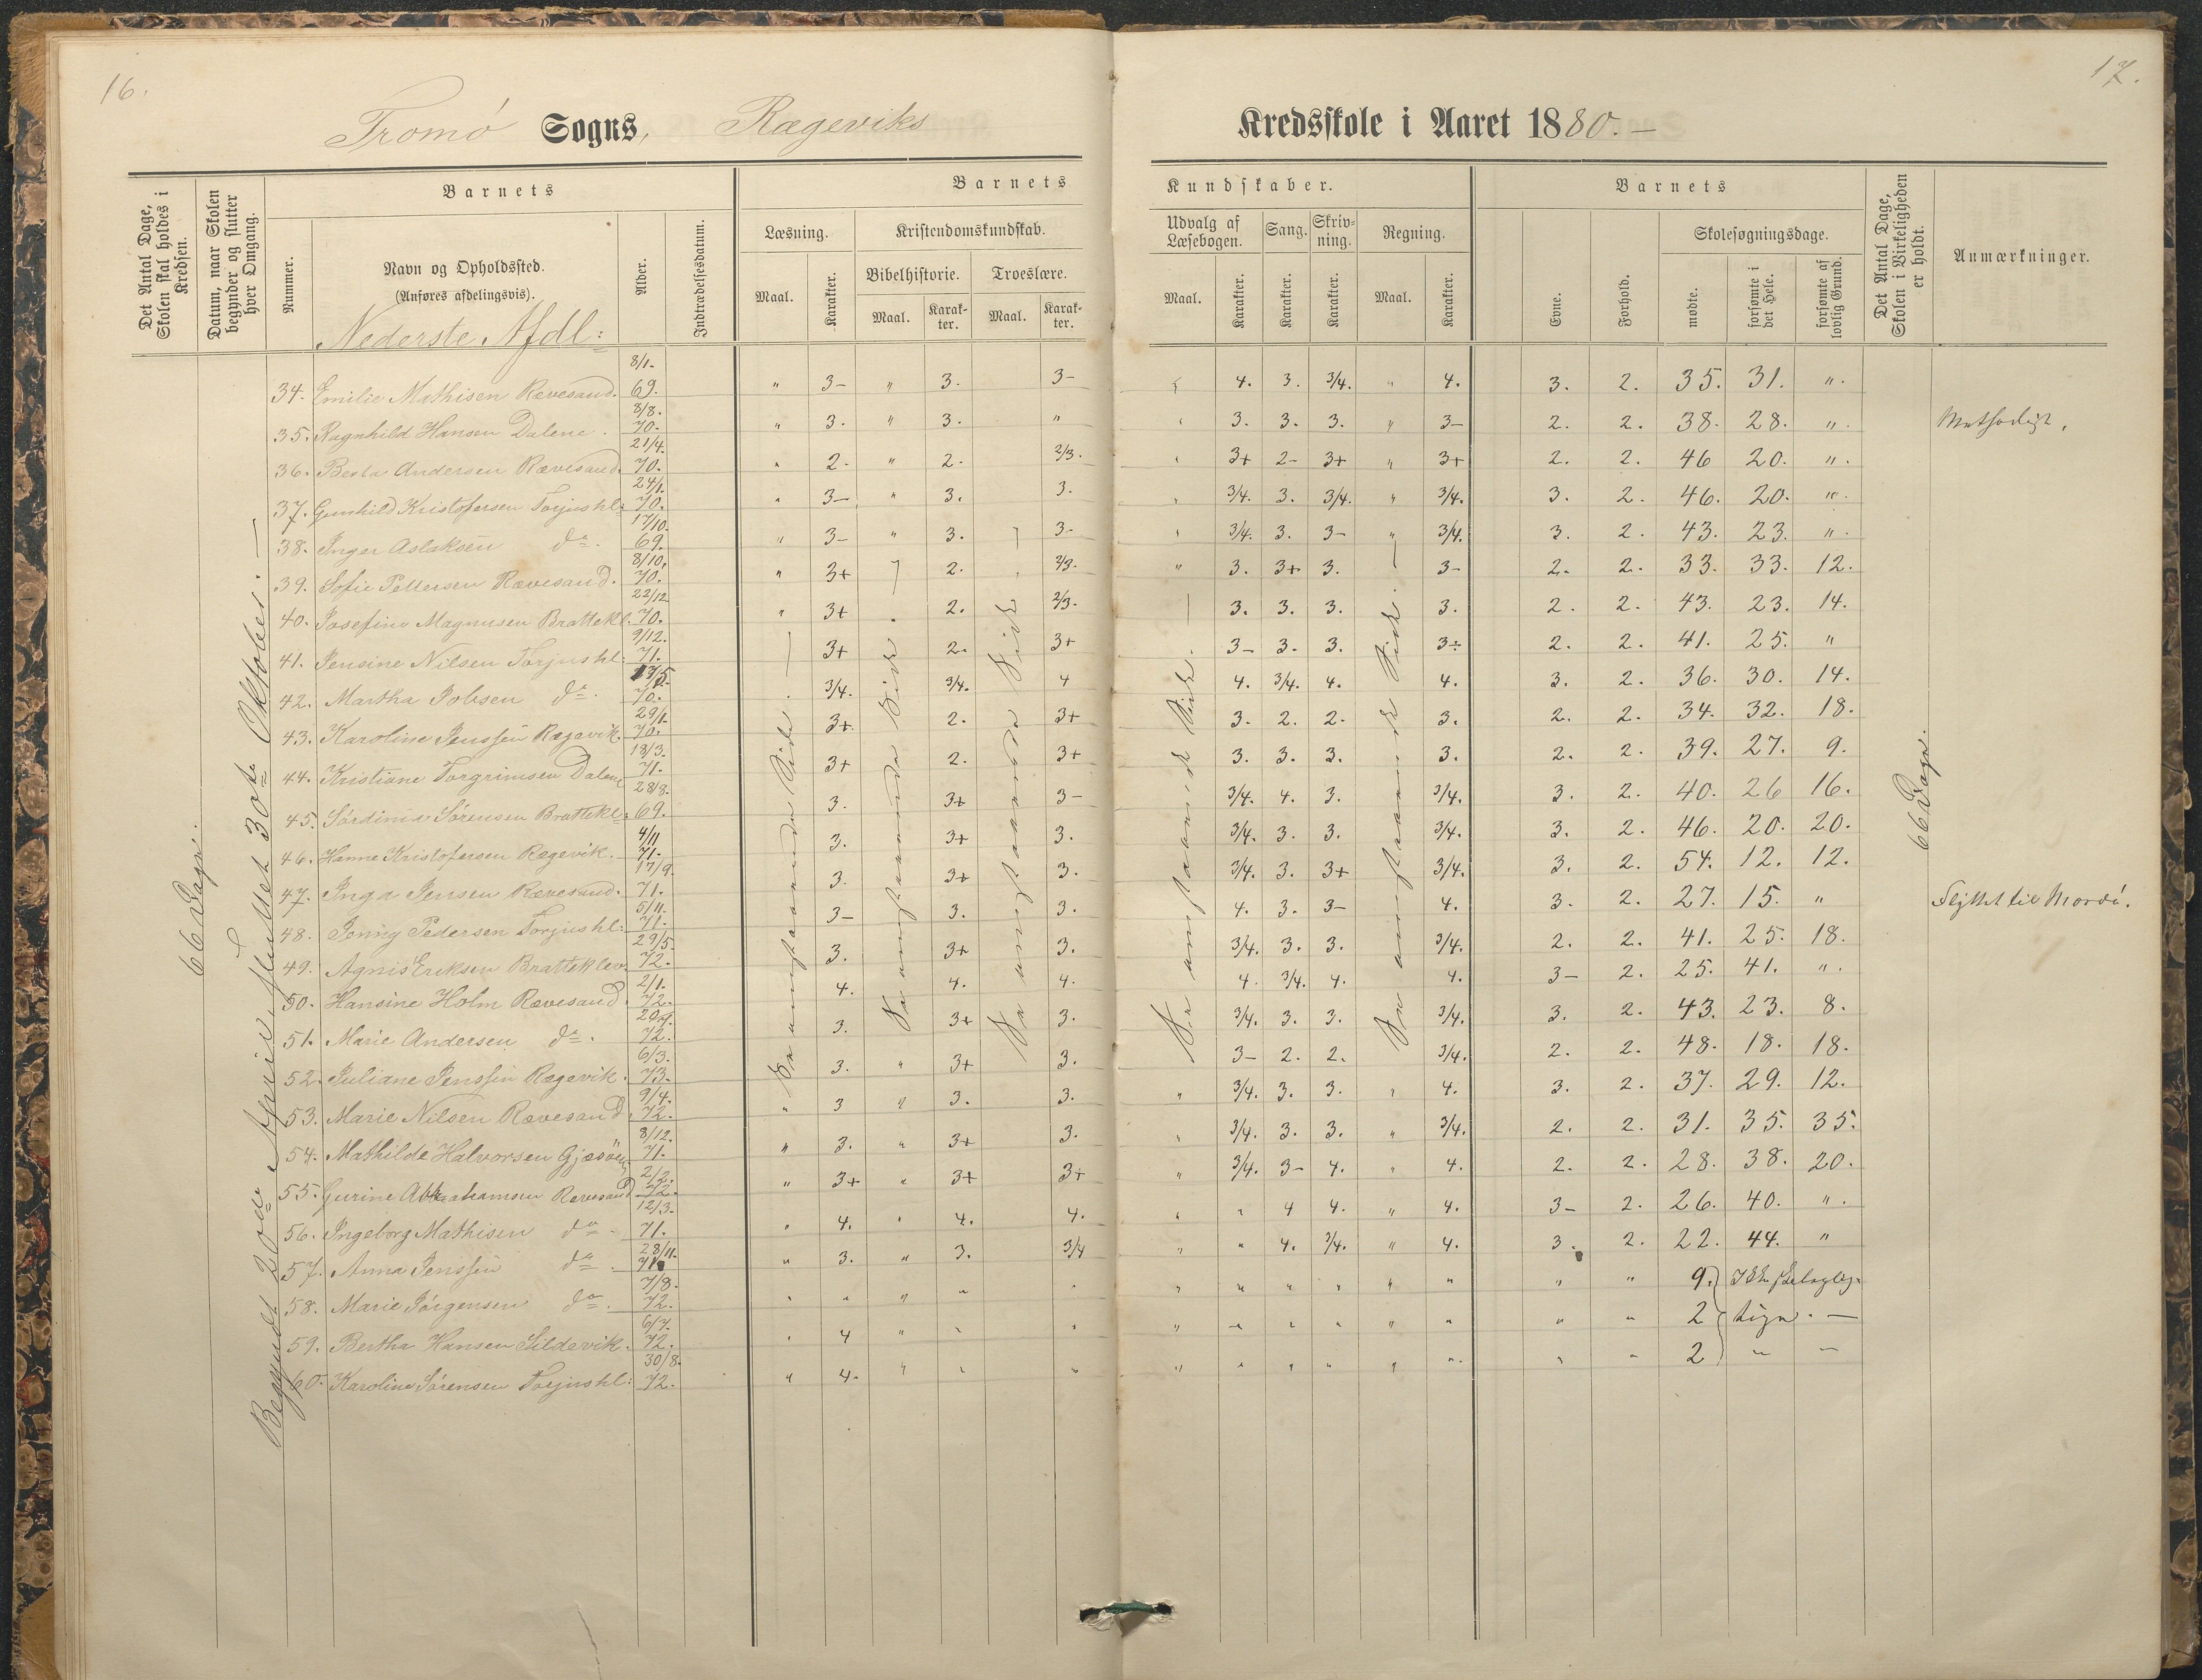 16.
17.
Tromö Sogns, Rægeviks Kredsskole i Aaret 1880.-
Det Antal Dage, Skolen skal holdes i Kredsen.
Datum, naar Skolen begynder og slutter hver Omgang.
Barnets
Nummer.
Navn og Opholdssted.
(Anføres afdelingsvis).
Alder.
Indtrædelsesdatum.
Barnets Kundskaber.
Læsning.
Maal.
Karakter.
Kristendomskundskab.
Bibelhistorie.
Maal.
Karak-
ter.
Troeslære.
Maal.
Karak-
ter.
Udvalg af
Læsebogen.
Maal.
Karakter.
Sang.
Karakter.
Skriv-
ning.
Karakter.
Regning.
Maal.
Karakter.
Barnets
Evne.
Forhold.
Skolesøgningsdage.
mødte.
forsømte i det Hele.
forsømte af lovlig Grund.
Det Antal Dage, Skolen i Virkeligheden er holdt.
Anmærkninger.
Nederste Afdl:
66 Dage.
Begyndt 20de April, sluttet 30te Oktober.-
34. Emilie Mathisen Rævesand. 8/1. 69. " 3- " 3. 3- 4. 3. 3/4. " 4. 3. 2. 35. 31. ".
35. Ragnhild Hansen Dalene. 8/8. 70. " 3. " 3. " 3. 3. 3. " 3- 2. 2. 38. 28. ".
36. Berta Andersen Rævesand. 21/4. 70. " 2- " 2. 2/3. 3+ 2- 3+ " 3+ 2. 2. 46 20. ".
37. Gunhild Kristofersen Torjushl: 24/1. 70. " 3- " 3. 3. " 3/4. 3. 3/4. " 3/4. 3. 2. 46. 20. ".
38. Inger Aslaksen do. 17/10. 69. " 3- " 3. 3- " 3/4. 3. 3- " 3/4. 3. 2. 43. 23. ".
39. Sofie Pettersen Rævesand. 8/10. 70. " 3+ 2. 2/3. " 3. 3+ 3. 3- 2. 2. 33. 33. 12.
40. Josefine Magnusen Brattekl. 22/12 70. " 3+ 2. 2/3. 3. 3. 3. 3. 2. 2. 43. 23. 14.
41. Jensine Nilsen Torjushl: 9/12. 71. 3+ 2. 3+ 3- 3. 3. 3÷ 2. 2. 41. 25. "
42. Martha Jobsen do. 17/5. 70. 3/4. 3/4. 4 4. 3/4. 4. 4. 3. 2. 36. 30. 14.
43. Karoline Jenssen Rægevik. 29/1. 70. 3+ 2. 3+ 3. 2. 2. 3. 2. 2. 34. 32. 18.
44. Kristiane Torgrimsen Dalene 18/3. 71. 3+ 2. 3+ 3. 3. 3. 3. 2. 2. 39. 27. 9.
45. Sørdinie Sørensen Brattekl: 28/8. 69. 3. 3+ 3- 3/4. 4. 3. 3/4. 3. 2. 40. 26 16.
46. Hanne Kristofersen Rægevik. 4/11 71. 3. 3+ 3. 3/4. 3. 3. 3/4. 3. 2. 46. 20. 20.
47. Inga Jensen Rævesand. 17/9. 71. 3. 3+ 3. 3/4. 3. 3+ 3/4. 3. 2. 54. 12. 12.
48. Jonny Pedersen Torjushl: 5/11. 71. 3- 3. 3. 4. 3. 3- 4. 3. 2. 27. 15. " Flyttet til Mærdö.
49. Agnis Eriksen Bratteklev. 29/5. 72. 3. 3+ 3. 3/4. 3. 3. 3/4. 2. 2. 41. 25. 18.
50. Hansine Holm Rævesand 2/1. 72. 4. 4. 4. 4. 3/4. 4. 4. 3- 2. 25. 41. ".
51. Marie Andersen do. 72. 3. 3+ 3. 3/4. 3. 3. 3/4. 3. 2. 43. 23. 8.
52. Juliane Jenssen Rægevik. 6/3. 73. 3. " 3+ 3. 3- 2. 2. 3/4. 2. 2. 48. 18. 18.
53. Marie Nilsen Rævesand. 9/4. 72. " 3 " 3. 3. " 3/4. 3. 3. " 4. 3. 2. 37. 29. 12.
54. Mathilde Halvorsen Gjæsöen 8/12. 71. " 3. " 3+ 3. " 3/4. 3. 3. " 3/4. 2. 2. 31. 35. 35.
55. Gurine Abrahamsen Rævesand 2/2. 72. " 3+ " 3+ 3+ " 3/4. 3- 4. " 4. 2. 2. 28. 38. 20.
56. Ingeborg Mathisen do. 12/3. 71. " 4. " 4. 4. " " 4 4. " 4. 3- 2. 26. 40. ".
57. Anna Jenssen do. 28/11. 71. " 3. " 3. 3/4 " " 4. 3/4. " 4. 3. 2. 22. 44. "
58. Marie Jörgensen do. 7/8. 72. " " " " " " " " " " " " " 9.
59. Bertha Hansen Sildevik. 6/7. 72. " 4 " " " " " " " " " " " 2
60. Karoline Sørensen Torjushl: 30/8. 72. " 4. " " " " " " " " " " " 2 " "
66 Dage.